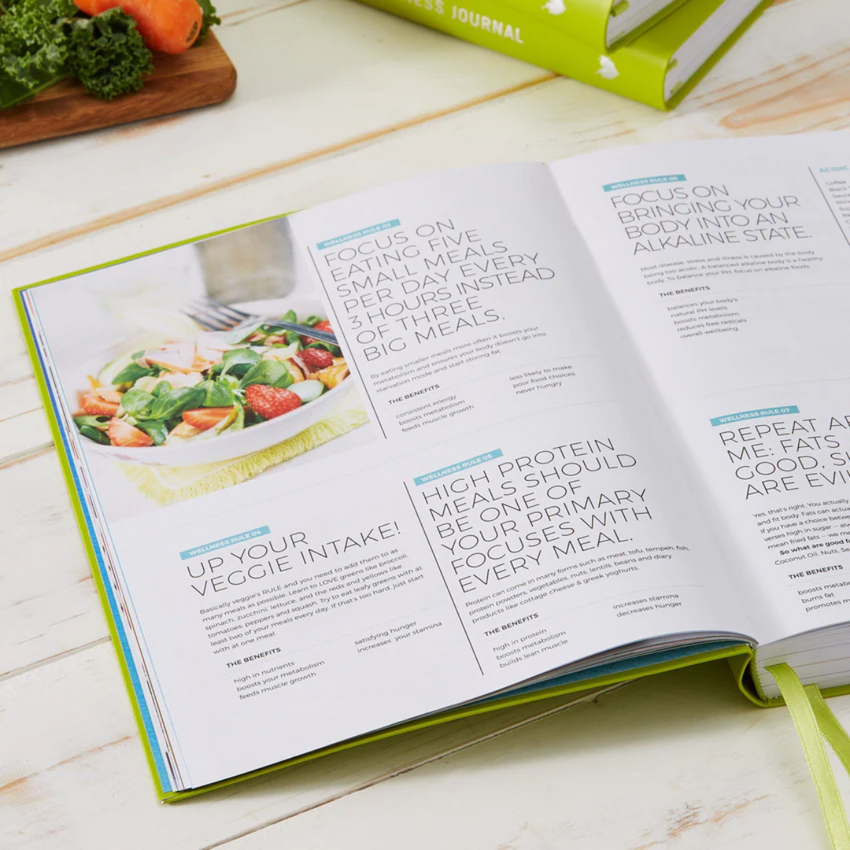 NESS JOURNAL
WELLNESS RULE 03
FOCUS ON
EATING FIVE
SMALL MEALS
PER DAY EVERY
3 HOURS INSTEAD
OF THREE
BIG MEALS.
By eating smaller meals more often it boosts your
metabolism and ensures your body doesn't go into
starvation mode and start storing fat.
THE BENEFITS
consistent energy
boosts metabolism
feeds muscle growth
less likely to make
poor food choices
never hungry
WELLNESS RULE 04
UP YOUR
VEGGIE INTAKE!
Basically veggie's RULE and you need to add them to as
many meals as possible. Learn to LOVE greens like broccoli,
spinach, zucchini, lettuce, and the reds and yellows like
tomatoes, peppers and squash. Try to eat leafy greens with at
least two of your meals every day, if that's too hard, just start
with at one meal.
THE BENEFITS
high in nutrients
boosts your metabolism
feeds muscle growth
satisfying hunger
increases your stamina
WELLNESS RULE 05
HIGH PROTEIN
MEALS SHOULD
BE ONE OF
YOUR PRIMARY
FOCUSES WITH
EVERY MEAL.
Protein can come in many forms such as meat, tofu, tempeh, fish,
protein powders, vegetables, nuts, lentils, beans and diary
products like cottage cheese & greek yoghurts.
THE BENEFITS
high in protein
boosts metabolism
builds lean muscle
increases stamina
decreases hunger
WELLNESS RULE 06
FOCUS ON
BRINGING YOUR
BODY INTO AN
ALKALINE STATE.
Most disease, stress and illness is caused by the body
being too acidic. A balanced alkaline body is a healthy
body. To balance your PH, focus on alkaline foods.
THE BENEFITS
balances your body's
natural PH levels
boosts metabolism
reduces free radicals
overall wellbeing
ACIDIC
Coffee
WELLNESS RULE 07
REPEAT AF
ME: FATS
GOOD, SU
ARE EVIL
Yes, that's right. You actually
and fit body. Fats can actua
if you have a choice betwe
verses high in sugar – alw
mean fried fats – we me
So what are good f
Coconut Oil, Nuts, Se
THE BENEFITS
boosts metab
burns fat
promotes m